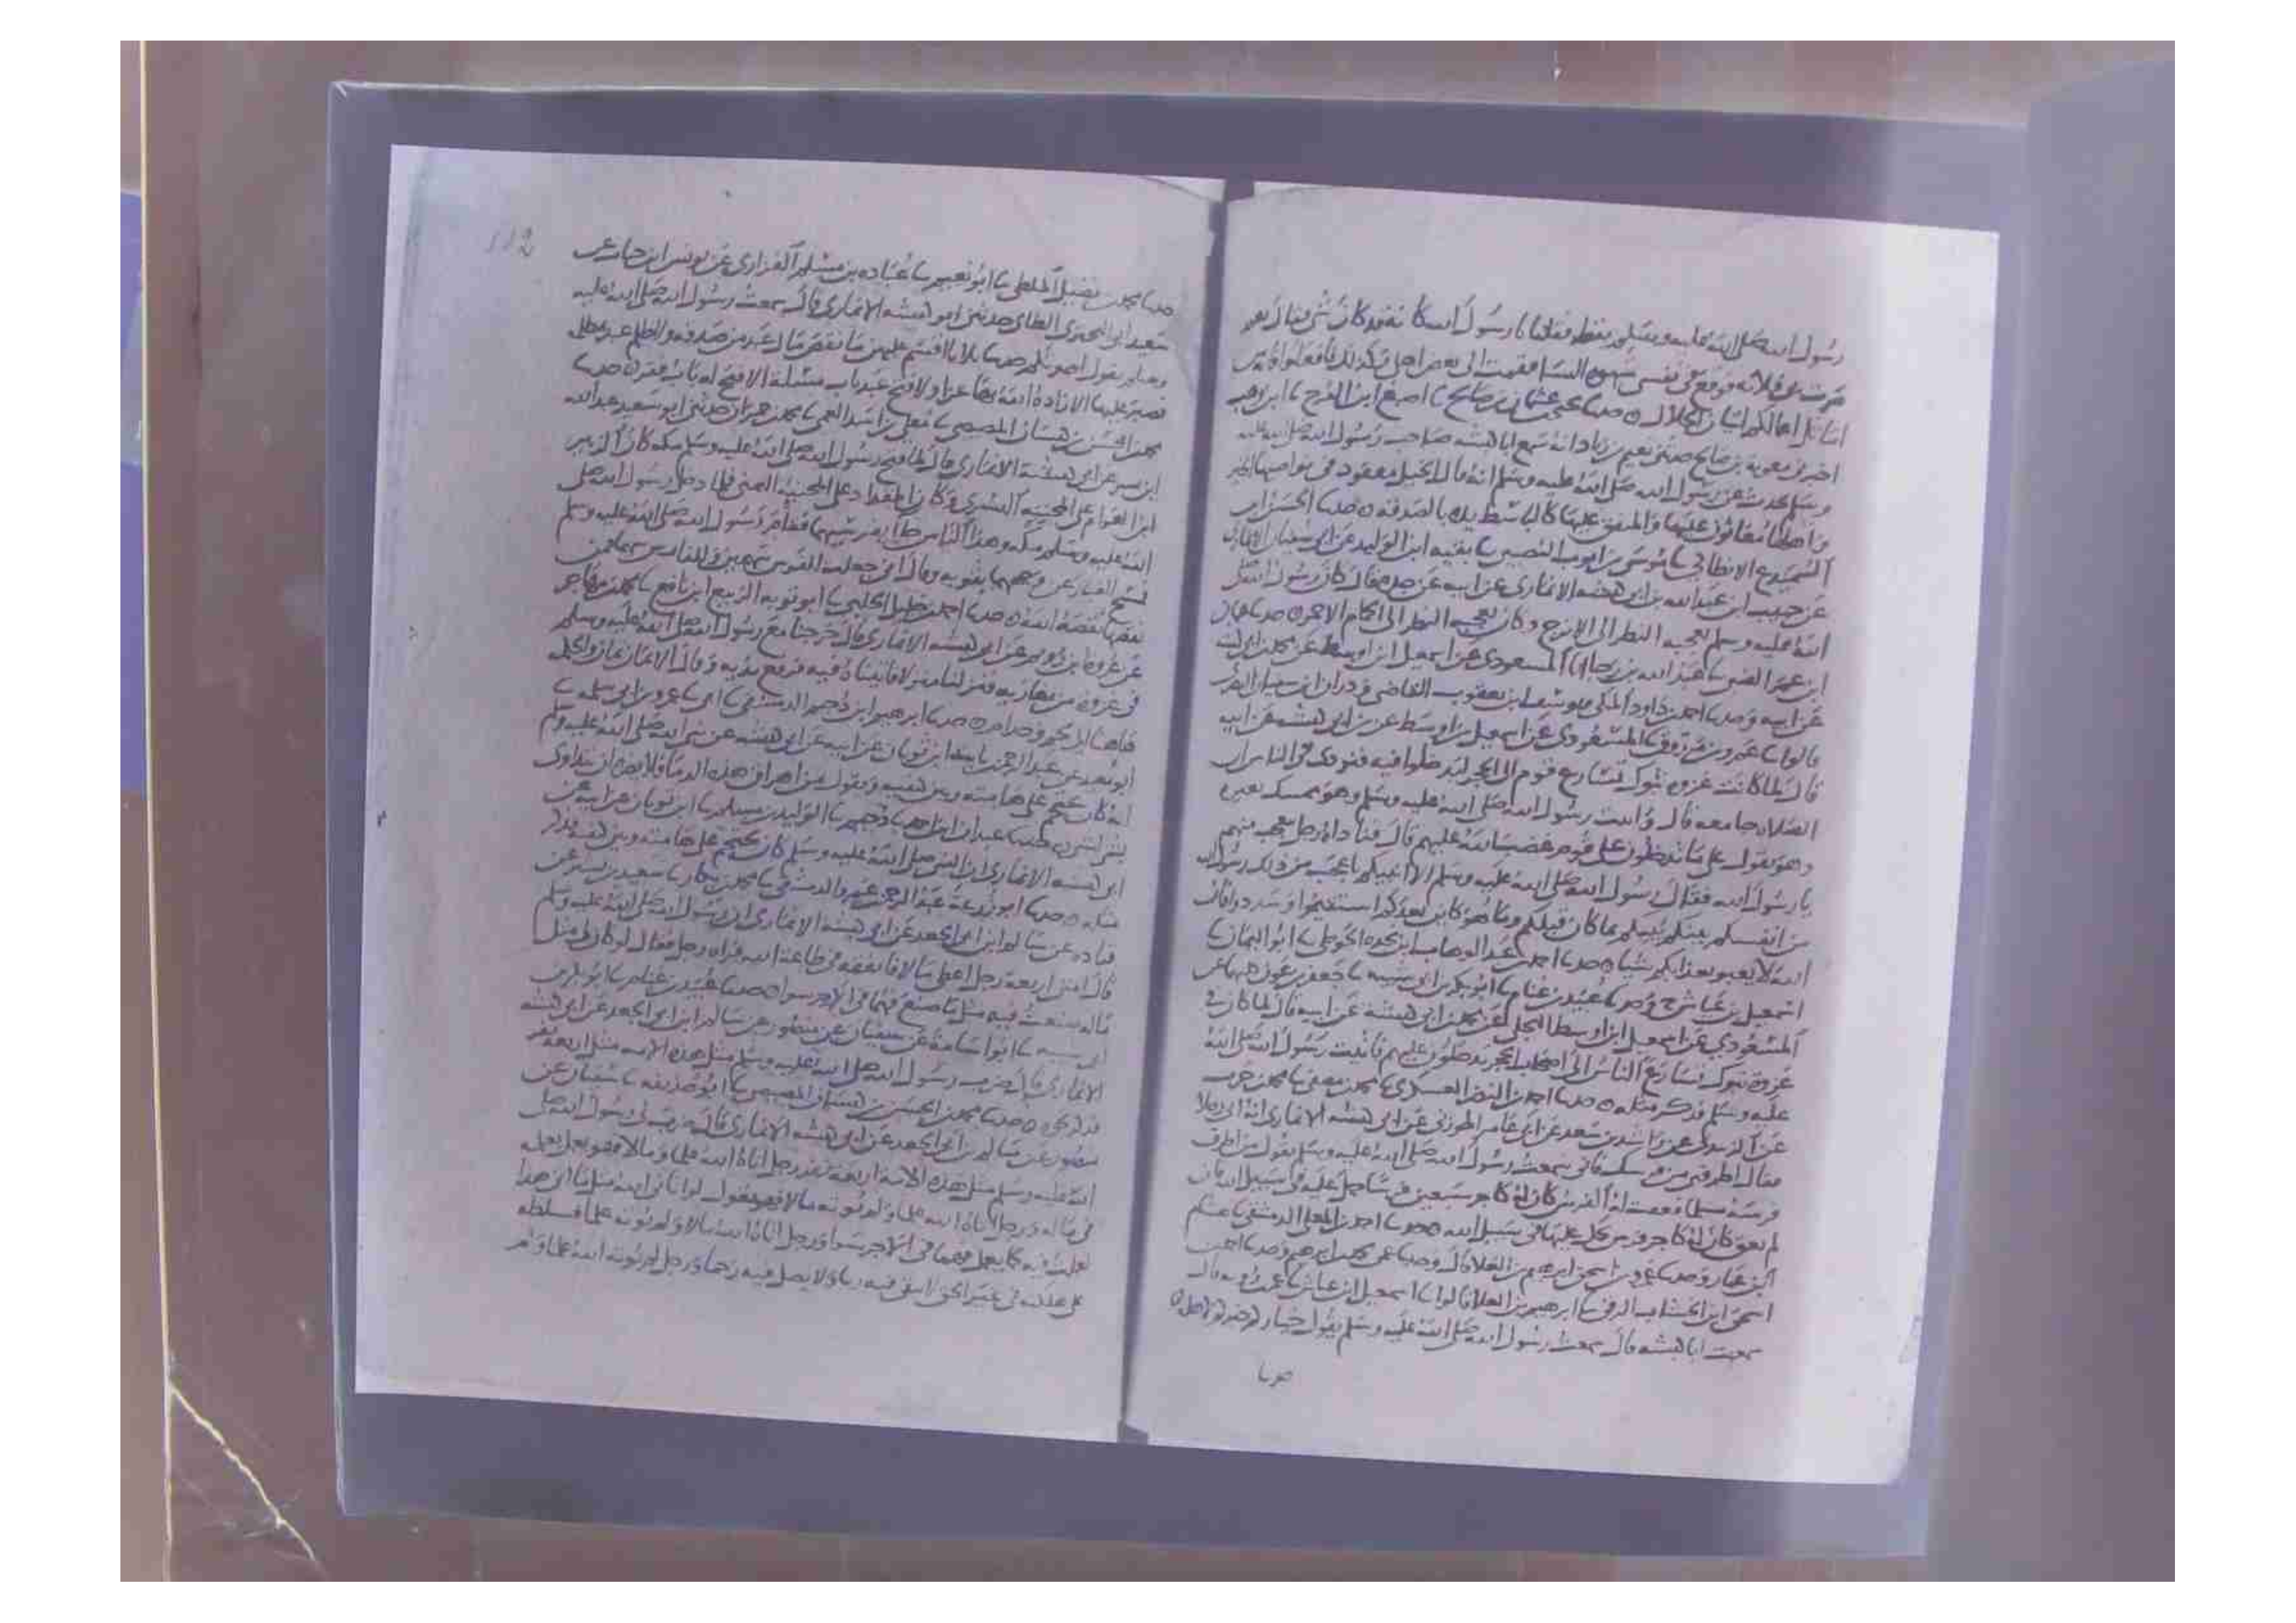 رسول الله صلى الله عليه وسلم يقطر فقلنا يا رسول الله كأنه قد كان شي فقال نعم
مرت بي فلانه فوقع في نفسي شهوه النسا فقمت الى بعض اهلي وكذلك فافعلوا فانه من
اماثل اعمالكم اتيان الحلال ٥ حدثنا يحيى بن عثمان بن صالح ثنا اصبغ ابن الفرج ثنا ابن وهب
اخبرني معوية بن صالح حدثني نعيم بن زياد انه سمع ابا كبشه صاحب رسول الله صلى الله عليه
وسلم يحدث عن رسول الله صلى الله عليه وسلم انه قال الخيل معقود في نواصيها الخير
واهلها معانون عليها والمنفق عليها كالباسط يده بالصدقه ٥ حدثنا الحسن ابن
السميدع الانطاكي ثنا موسى بن ايوب النصيبي ثنا بقيه ابن الوليد عن ابي سفيان الانماري
عن حبيب ابن عبد الله بن ابي كبشه الانماري عن ابيه عن جده قال كان رسول الله صلى
الله عليه وسلم يعجبه النظر الى الاترج وكان يعجبه النظر الى الحمام الاحمر ٥ حدثنا عثمان
ابن عمر الضبي ثنا عبد الله بن رجا انا المسعودي عن اسمعيل ابن اوسط عن محمد بن ابي كبشه
عن ابيه وحدثنا احمد بن داود المكي ويوسف ابن يعقوب القاضي
قالوا ثنا عمرو بن مرزوق ثنا المسعودي عن اسمعيل بن اوسط عن بن ابي كبشه عن ابيه
قال لما كانت غزوه تبوك تسارع قوم الى الحجر ليدخلوا فيه فنودي في الناس ان
الصلاه جامعه قال فاتيت رسول الله صلى الله عليه وسلم وهو ممسك بعيره
وهو يقول على ما تدخلون على قوم غضب الله عليهم قال فناداه رجل يعجب منهم
يا رسول الله فقال رسول الله صلى الله عليه وسلم الا انبيكم باعجب من ذلك رسول
من انفسكم بينكم ينبيكم بما كان قبلكم وما هو كاين بعدكم استقيموا وسددوا فان
الله لا يعبو بعذابكم شيا ٥ حدثنا احمد بن عبد الوهاب ابن نجده الحوطي ثنا ابو اليمان ثنا
اسمعيل بن عياش ح وحدثنا عبيد بن غنام ثنا ابو بكر بن ابي شيبه ثنا جعفر بن عون كلهما عن
المسعودي عن اسمعيل ابن اوسط البجلي عن محمد بن ابي كبشة عن ابيه قال لما كان في
غزوة تبوك تسارع الناس الى اصحاب الحجر يدخلون عليهم فاتيت رسول الله صلى الله
عليه وسلم فذكر مثله ٥ حدثنا احمد بن النضر العسكري ثنا محمد بن مصفى ثنا محمد بن حرب
عن الزبيدي عن راشد بن سعد عن ابي عامر الهوزني عن ابي كبشه الانماري انه اتى رجلا
فقال اطرقني من فرسك فاني سمعت رسول الله صلى الله عليه وسلم يقول من اطرق
فرسه مسلما فعقب له الفرس كان له كاجر سبعين فرسا حمل عليه في سبيل الله فان
لم يعقب كان له كاجر فرس حمل عليها في سبيل الله ٥ حدثنا احمد بن المعلى الدمشقي ثنا هشام
ابن عمار وحدثنا عمرو بن اسحق بن ابرهيم بن العلا قال وحدثنا
اسحق ابن الخشاب الرقي ثنا ابرهيم بن العلا قالوا ثنا اسمعيل ابن عياش ثنا عمر بن رؤبه قال
سمعت ابا كبشه قال سمعت رسول الله صلى الله عليه وسلم يقول خياركم خيركم لاهله ٥
حدثنا
112
حدثنا محمد بن فضيل الملطي ثنا ابو نعيم ثنا عباده بن مسلم الفزاري عن يونس ابن خباب عن
سعيد ابي البختري الطائي حدثني ابو كبشه الانماري قال سمعت رسول الله صلى الله عليه
وسلم يقول احدثكم حديثا ثلاثا اقسم عليهن ما نقص مال عبد من صدقه ولا ظلم عبد مظلمه
فصبر عليها الا زاده الله بها عزا ولا فتح عبد باب مسئلة الا فتح له باب فقر ٥ حدثنا
محمد بن الحسن بن هشان المصيصي ثنا معلى بن اسد العمي ثنا محمد بن حمران حدثني ابو سعيد عبد الله
ابن بسر عن ابي كبشة الانماري قال لما فتح رسول الله صلى الله عليه وسلم مكه كان الزبير
ابن العوام على المجنبه اليسرى وكان المقداد على المجنبه اليمنى فلما دخل رسول الله صلى
الله عليه وسلم مكه وهدا الناس جاا بفرسيهما فقام رسول الله صلى الله عليه وسلم
فمسح الغبار عن وجههما بثوبه وقال اني جعلت للفرس سهمين وللفارس سهما فمن
نقصها نقصه الله ٥ حدثنا احمد بن خليل الحلبي ثنا ابو توبه الربيع ابن نافع ثنا محمد بن مهاجر
عن عروه ابن رويم عن ابي كبشه الانماري قال خرجنا مع رسول الله صلى الله عليه وسلم
في غزوه من مغازيه فنزلنا منزلا فاتيناه فيه فرفع يديه وقال الايمان يمان والحكمه
هاهنا الى لخم وجذام ٥ حدثنا ابرهيم ابن دحيم الدمشقي ثنا ابي ثنا عمرو بن ابي سلمه ثنا
ابو معيد عن عبد الرحمن بن ثابت ابن ثوبان عن ابيه عن ابي كبشه عن نبي الله صلى الله عليه وسلم
انه كان يحتجم على هامته وبين كتفيه ويقول من اهراق من هذه الدما فلا يضره ان لا يتداوى
بشي لشي ٥ حدثنا عبدان ابن احمد ثنا دحيم ثنا الوليد بن مسلم ثنا ابن ثوبان عن ابيه عن
ابي كبشه الانماري ان النبي صلى الله عليه وسلم كان يحتجم على هامته وبين كتفيه فذكر
مثله ٥ حدثنا ابو زرعة عبد الرحمن بن عمرو الدمشقي ثنا محمد بن بكار ثنا سعيد بن بشير عن
قتاده عن سالم ابن ابي الجعد عن ابي كبشه الانماري ان رسول الله صلى الله عليه وسلم
قال امتي اربعه رجل اعطي مالا فانفقه في طاعة الله فراه رجل فقال لو كان لي مثل
ماله صنعت فيه مثل ما صنع فهما في الاجر سوا ٥ حدثنا عبيد بن غنام ثنا ابو بكر بن
ابي شيبه ثنا ابو اسامة عن سفيان عن منصور عن سالم ابن ابي الجعد عن ابي كبشه
الانماري قال ضرب رسول الله صلى الله عليه وسلم مثل هذه الامه مثل اربعه نفر
فذكره ٥ حدثنا محمد بن الحسن بن هشان المصيصي ثنا ابو حذيفه ثنا سفيان عن
منصور عن سالم بن ابي الجعد عن ابي كبشه الانماري قال ضرب لي رسول الله صلى
الله عليه وسلم مثل هذه الامه اربعه نفر رجل اتاه الله علما ومالا فهو يعمل بعلمه
في ماله ورجل اتاه الله علما ولم يوته مالا فهو يقول لو اتاني الله مثل ما اتى هذا
لعملت فيه كما يعمل فهما في الاجر سوا ورجل اتاه الله مالا ولم يوته علما فسلطه
على هلكته في غير الحق لا يتقي فيه ربه ولا يصل فيه رحما ورجل لم يوته الله علما ولم